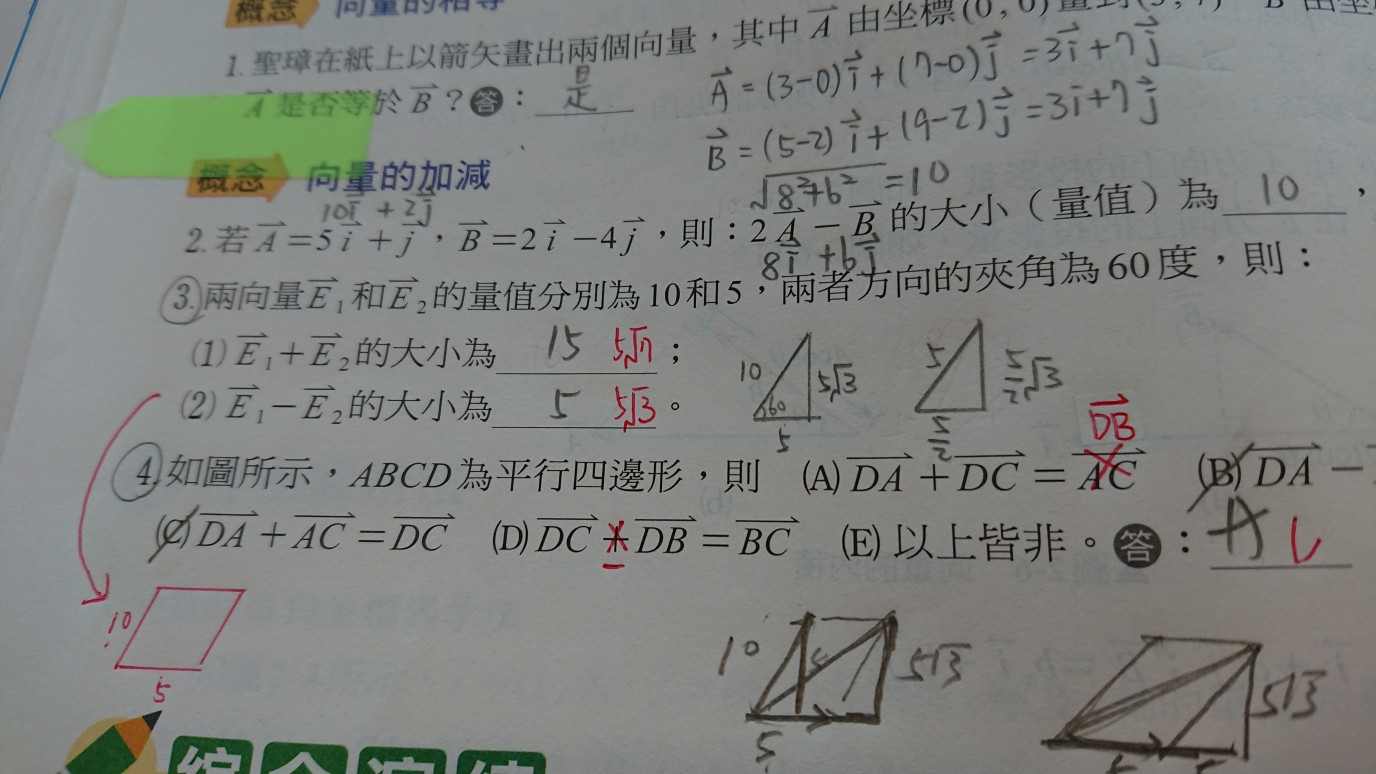 概念 向量的相等
1. 聖璋在紙上以箭矢畫出兩個向量，其中 A 由坐標(0, 0)畫到(3, 7)
A 是否等於 B？答： 是
A = (3-0)i + (7-0)j = 3i + 7j
B = (5-2)i + (9-2)j = 3i + 7j
概念 向量的加減
√8²+6² = 10
10i + 2j
2. 若 A = 5i + j，B = 2i − 4j，則：2A − B 的大小（量值）為 10，
8i + 6j
3. 兩向量E₁和E₂的量值分別為10和5，兩者方向的夾角為60度，則：
(1) E₁+E₂的大小為 15 5√7；
(2) E₁−E₂的大小為 5 5√3。
10 5√3 60 5
5 5/2√3 5/2
DB
4. 如圖所示，ABCD為平行四邊形，則 (A) DA + DC = AC (B) DA −
(C) DA + AC = DC (D) DC + DB = BC (E) 以上皆非。答：
10 5
10 5√3 5
5√3
綜合演練